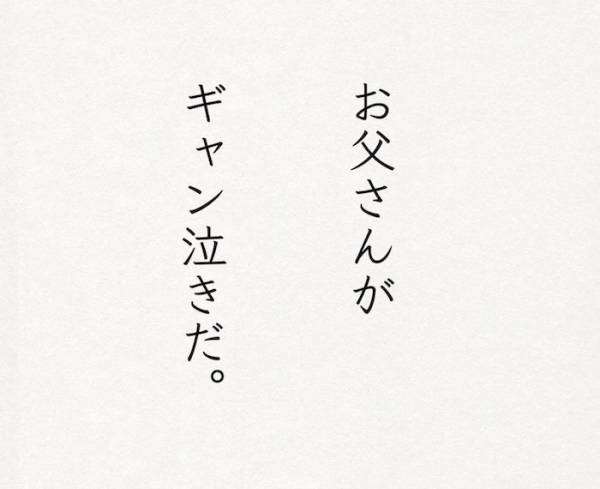 お父さんが
ギャン泣きだ。